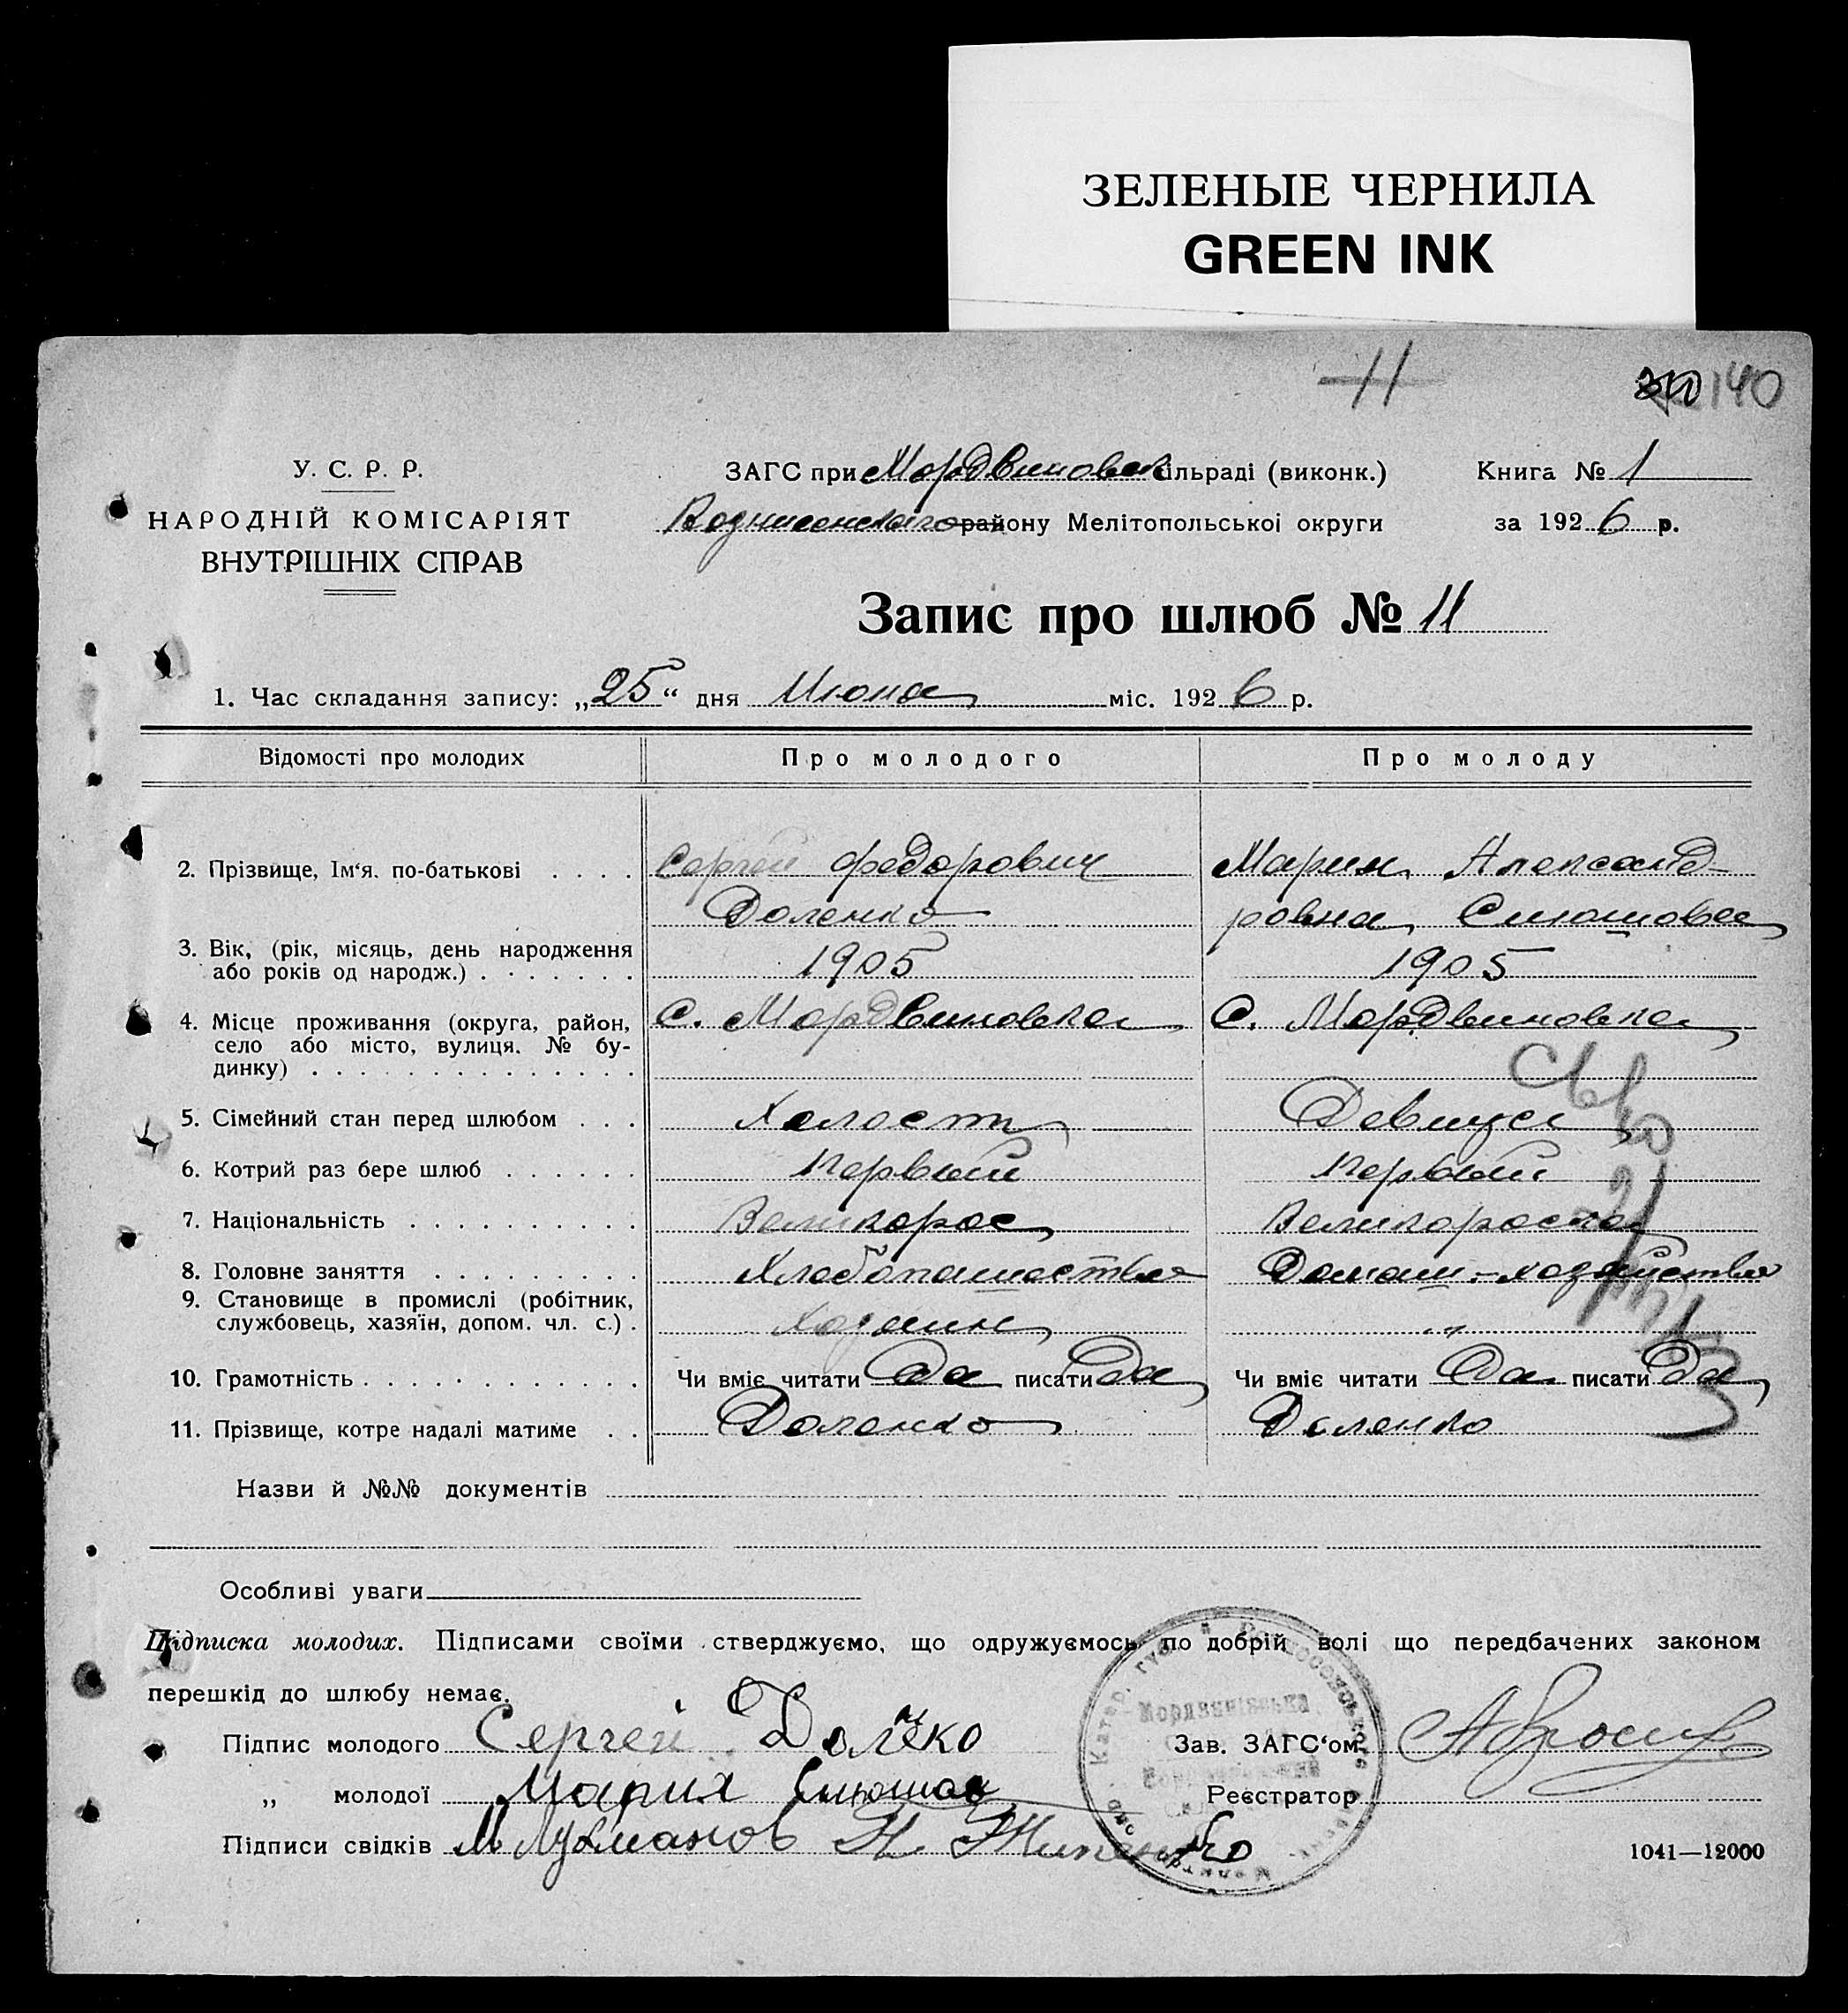 ЗЕЛЕНЫЕ ЧЕРНИЛА
GREEN INK
11
140
У. С. Р. Р.
НАРОДНІЙ КОМІСАРІЯТ
ВНУТРІШНІХ СПРАВ
ЗАГС при Мордвиновск сільраді (виконк.)
Книга № 1
району Мелітопольськоі округи
за 1926 р.
Запис про шлюб № 11
1. Час складання запису: „25“ дня Июня міс. 1926 р.
Відомості про молодих
Про молодого
Про молоду
2. Прізвище, Ім'я, по-батькові
Сергей Федорович
Доленко
Мария Александ-
ровна
3. Вік, (рік, місяць, день народження
або років од народж.)
1905
1905
4. Місце проживання (округа, район,
село або місто, вулиця. № бу-
динку)
С. Мордвиновка
С. Мордвиновка
5. Сімейний стан перед шлюбом
Холост
Девица
6. Котрий раз бере шлюб
Первый
Первый
7. Національність
Великорос
Великороска
8. Головне заняття
Хлебопашество
Домаш-хозяйство
9. Становище в промислі (робітник,
службовець, хазяїн, допом. чл. с.)
Хозяин
"
10. Грамотність
Чи вміє читати Да писати Да
Чи вміє читати Да писати Да
11. Прізвище, котре надалі матиме
Доленко
Доленко
Назви й №№ документів
Особливі уваги
Підписка молодих. Підписами своїми стверджуємо, що одружуємось по добрій волі що передбачених законом
перешкід до шлюбу немає.
Підпис молодого Сергей
Зав. ЗАГС'ом
„ молодої Мария
Реєстратор
Підписи свідків
1041—12000